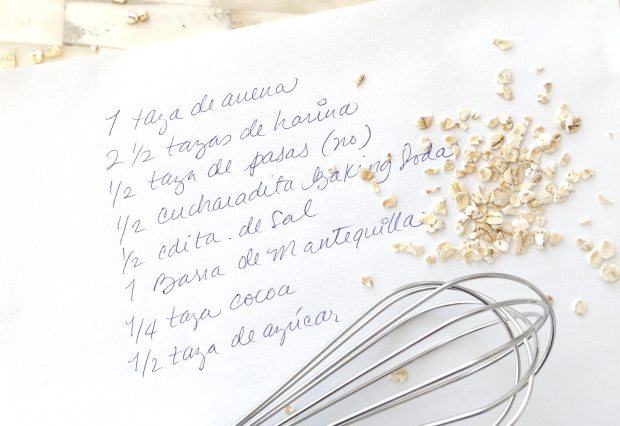 1 taza de avena
2 1/2 tazas de harina
1/2 taza de pasas (no)
1/2 cucharadita Baking Soda
1/2 cdita. de sal
1 Barra de Mantequilla
1/4 taza cocoa
1/2 taza de azúcar